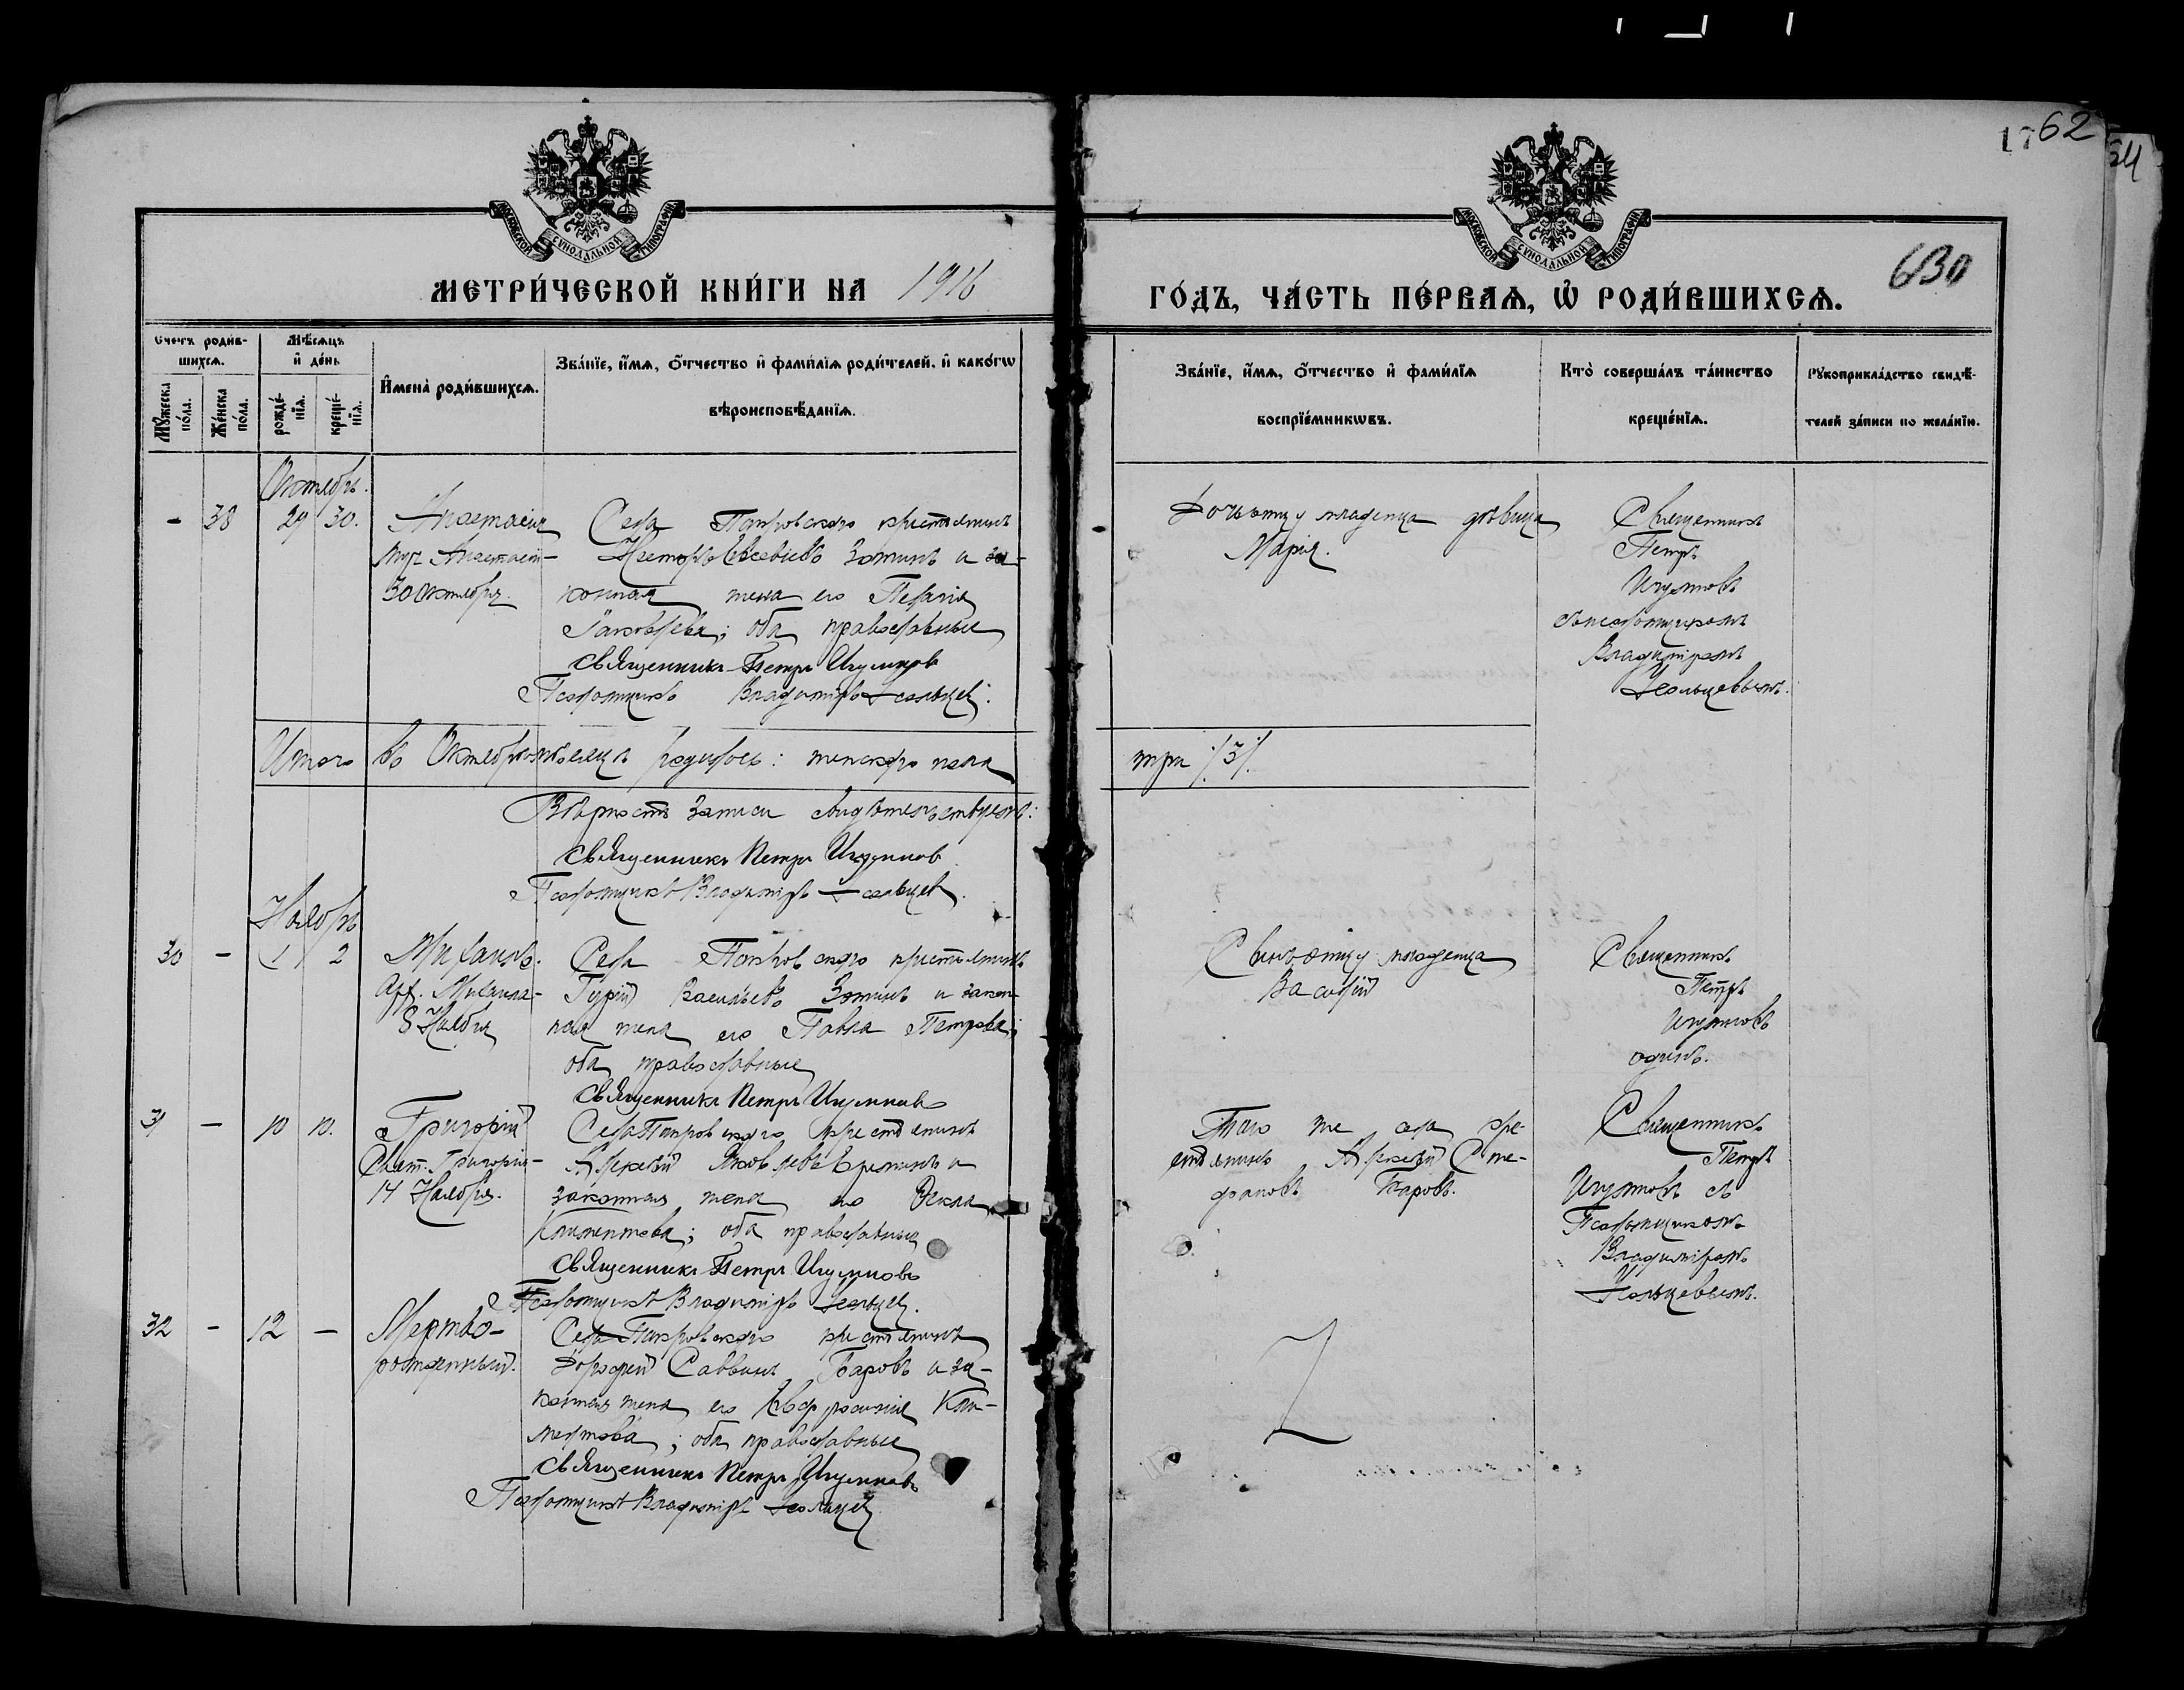 1762
54
МОСКОВСКОЙ СѴНОДАЛЬНОЙ ТИПОГРАФІИ
МОСКОВСКОЙ СѴНОДАЛЬНОЙ ТИПОГРАФІИ
630
МЕТРИ́ЧЕСКОЙ КНИ́ГИ НА 1916
ГО́ДЪ, ЧА́СТЬ ПЕ́РВАѦ, Ѡ҆ РОДИ́ВШИХСѦ.
Счетъ роди́в-
шихсѧ.
Мꙋ́жеска по́ла.
Же́нска по́ла.
Мѣ́сѧцъ
и҆ де́нь
рожде́-
нїѧ.
креще́-
нїѧ.
И҆мена̀ роди́вшихсѧ.
Зва́нїе, и҆́мѧ, ѻ҆́тчество и҆ фами́лїѧ роди́телей, и҆ како́гѡ
вѣроисповѣ́данїѧ.
Зва́нїе, и҆́мѧ, ѻ҆́тчество и҆ фами́лїѧ
воспрїе́мникѡвъ.
Кто̀ соверша́лъ та́инство
креще́нїѧ.
Рꙋкоприкла́дство свидѣ́-
телей за́писи по жела́нїю.
Октябрь.
- 38 29 30. Анастасія
Муч. Анастасіи-
30 Октября.
Села Покровскаго крестьянинъ
Несторъ Евсевіевъ Зотинъ и за-
конная жена его Пелагія
Іаковлева; оба православные
Священникъ Петръ Игумновъ
Псаломщикъ Владиміръ
Дочь отцу младенца дѣвица
Марія.
Священникъ
Петръ
Игумновъ
съ псаломщикомъ
Владиміромъ
Итого въ Октябрѣ мѣсяцѣ родилось: женскаго пола
три /3/.
Вѣрность записи свидѣтельствуемъ:
Священникъ Петръ Игумнов
Псаломщикъ Владиміръ
Ноябрь
30 - 1 2 Михаилъ.
Арх. Михаила-
8 Ноября
Села Покровскаго крестьянинъ
Гурій Васильевъ Зотинъ и закон-
ная жена его Павла Петрова;
оба православные
Священникъ Петръ Игумновъ
Сынъ отцу младенца
Василій
Священникъ
Петръ
Игумновъ
одинъ.
31 - 10 10. Григорій
Свят. Григорія-
14 Ноября.
Села Покровскаго крестьянинъ
Алексѣй Яковлевъ Ереминъ и
законная жена его Текла
Климентова; оба православные
Священникъ Петръ Игумновъ
Псаломщикъ Владиміръ
Того же села кре-
стьянинъ Алексѣй Сте-
фановъ Баровъ.
Священникъ
Петръ
Игумновъ съ
Псаломщикомъ
Владиміромъ
32 - 12 - Мертво-
рожденный.
Села Покровскаго крестьянинъ
Дорофей Саввинъ Баровъ и за-
конная жена его Евфросинія Кли-
ментова; оба православные
Священникъ Петръ Игумновъ
Псаломщикъ Владиміръ